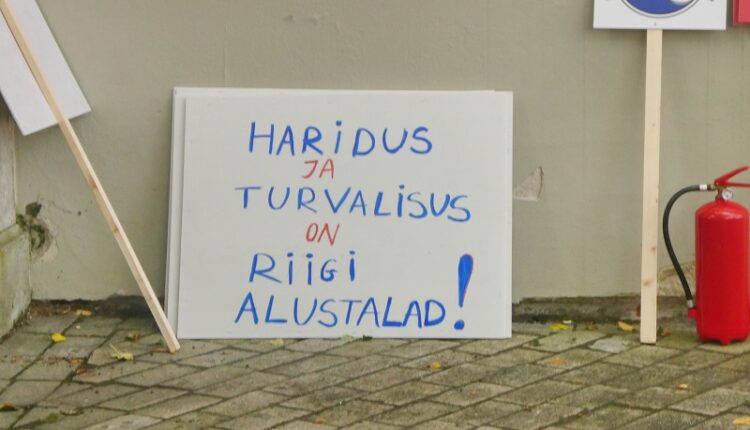 HARiDUS
JA
TURVALiSUS
ON
RiiGi
ALUSTALAD!